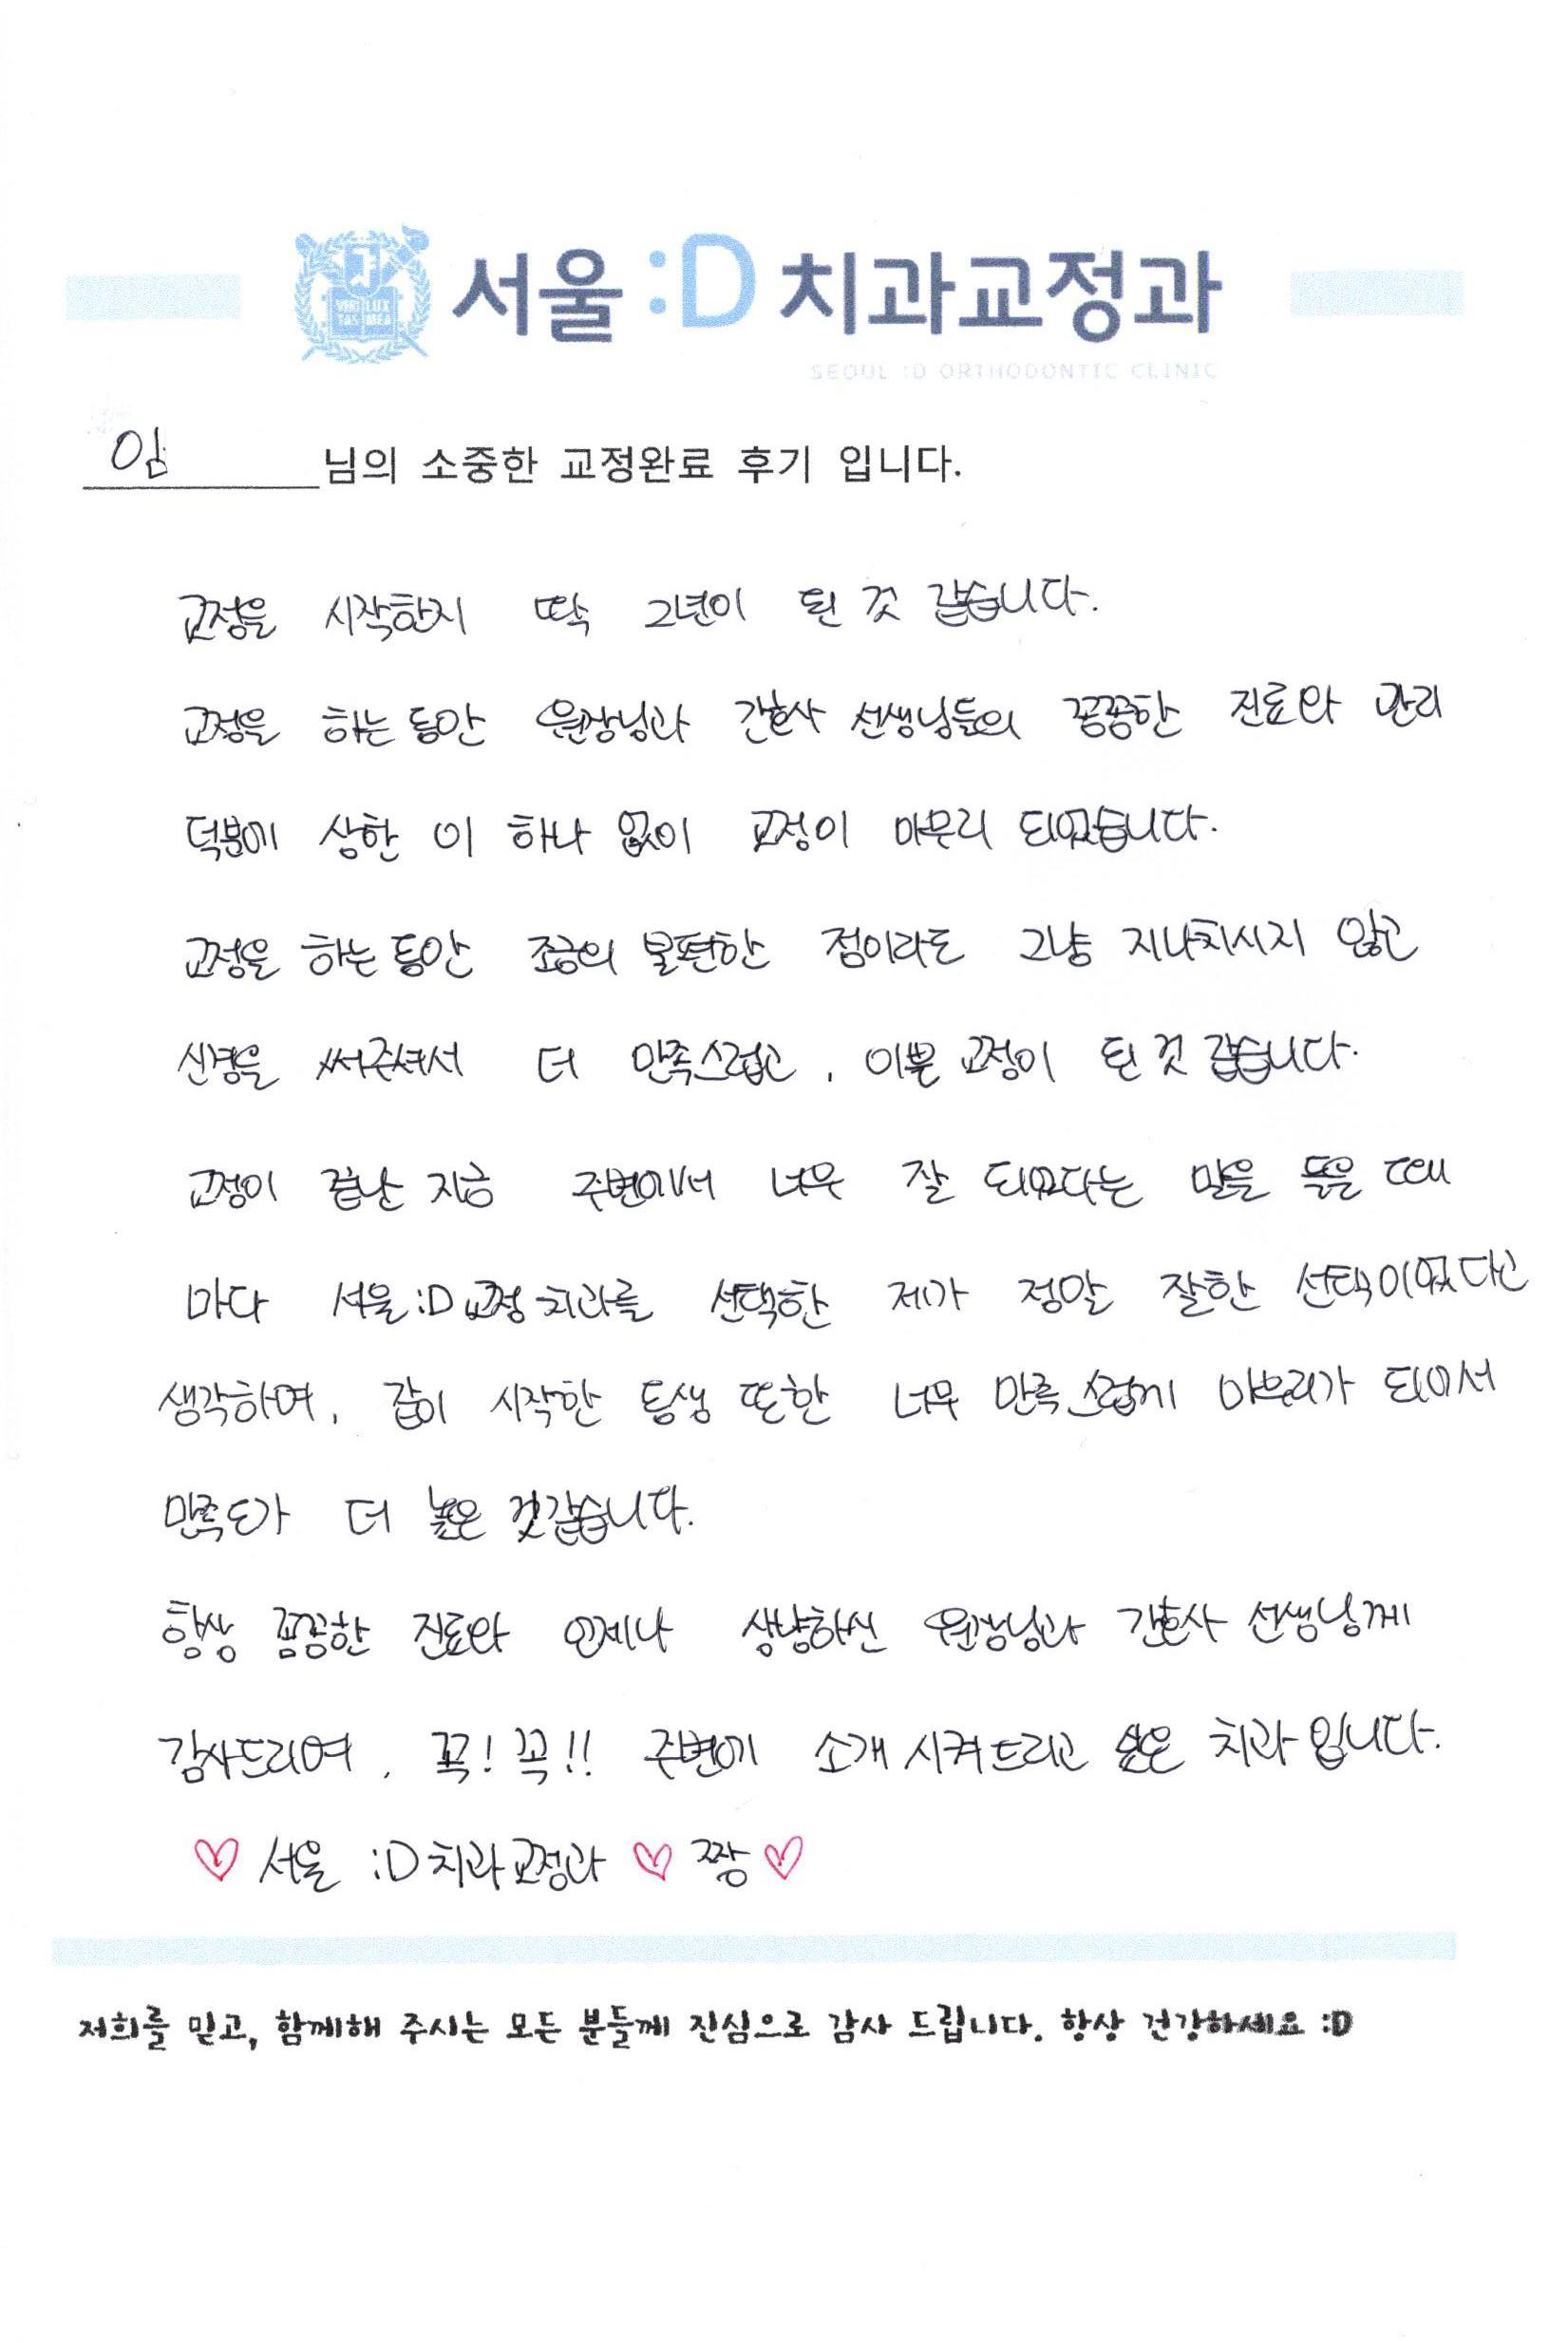 서울 :D 치과교정과
SEOUL :D ORTHODONTIC CLINIC
임 님의 소중한 교정완료 후기 입니다.
교정을 시작한지 딱 2년이 된 것 같습니다.
교정을 하는 동안 원장님과 간호사 선생님들의 꼼꼼한 진료와 관리
덕분에 상한 이 하나 없이 교정이 마무리 되었습니다.
교정을 하는 동안 조금의 불편한 점이라도 그냥 지나치시지 않고
신경을 써주셔서 더 만족스럽고, 이쁜 교정이 된 것 같습니다.
교정이 끝난 지금 주변에서 너무 잘 되었다는 말을 들을 때
마다 서울:D교정 치과를 선택한 제가 정말 잘한 선택이였다고
생각하며, 같이 시작한 동생 또한 너무 만족스럽게 마무리가 되어서
만족도가 더 높은 것같습니다.
항상 꼼꼼한 진료와 언제나 상냥하신 원장님과 간호사 선생님께
감사드리며, 꼭! 꼭!! 주변에 소개 시켜드리고 싶은 치과 입니다.
♡ 서울 :D 치과교정과 ♡ 짱 ♡
저희를 믿고, 함께해 주시는 모든 분들께 진심으로 감사 드립니다. 항상 건강하세요 :D